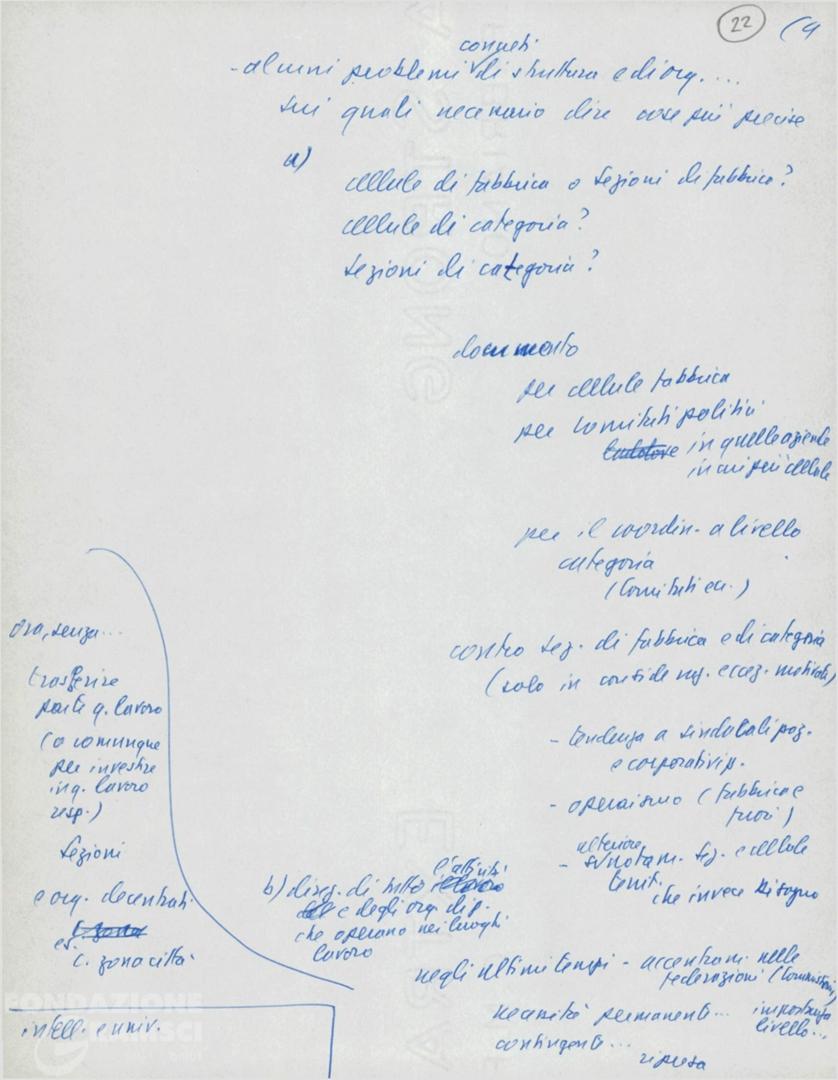 22 (4
concreti
- alcuni problemi di struttura e di org. ...
sui quali necessario dire cose più precise
a)
cellule di fabbrica o sezioni di fabbrica?
cellule di categoria?
sezioni di categoria?
documento
per cellule fabbrica
per comitati politici
in quelle aziende
in cui più cellule
per il coordin. a livello
categoria
(Comitati ecc.)
contro sez. di fabbrica e di categoria
(solo in eccez. motivati)
- tendenza a sindacalizzaz.
e corporativiz.
- operaismo (fabbrica e
fuori)
ulteriore
- svuotam. sez. e cellule
territ.
che invece bisogno
ora, senza...
trasferire
parte q. lavoro
(o comunque
per investire
in q. lavoro
resp.)
sezioni
e org. decentrati
es.
C. zona città
l'attività
b) direz. di tutto
e degli org. di p.
che operano nei luoghi
lavoro
negli ultimi tempi - accentram. nelle
federazioni (Commissioni)
necessità permanenti... importanza
livello...
contingenti...
ripresa
intell. e univ.
FONDAZIONE
GRAMSCI